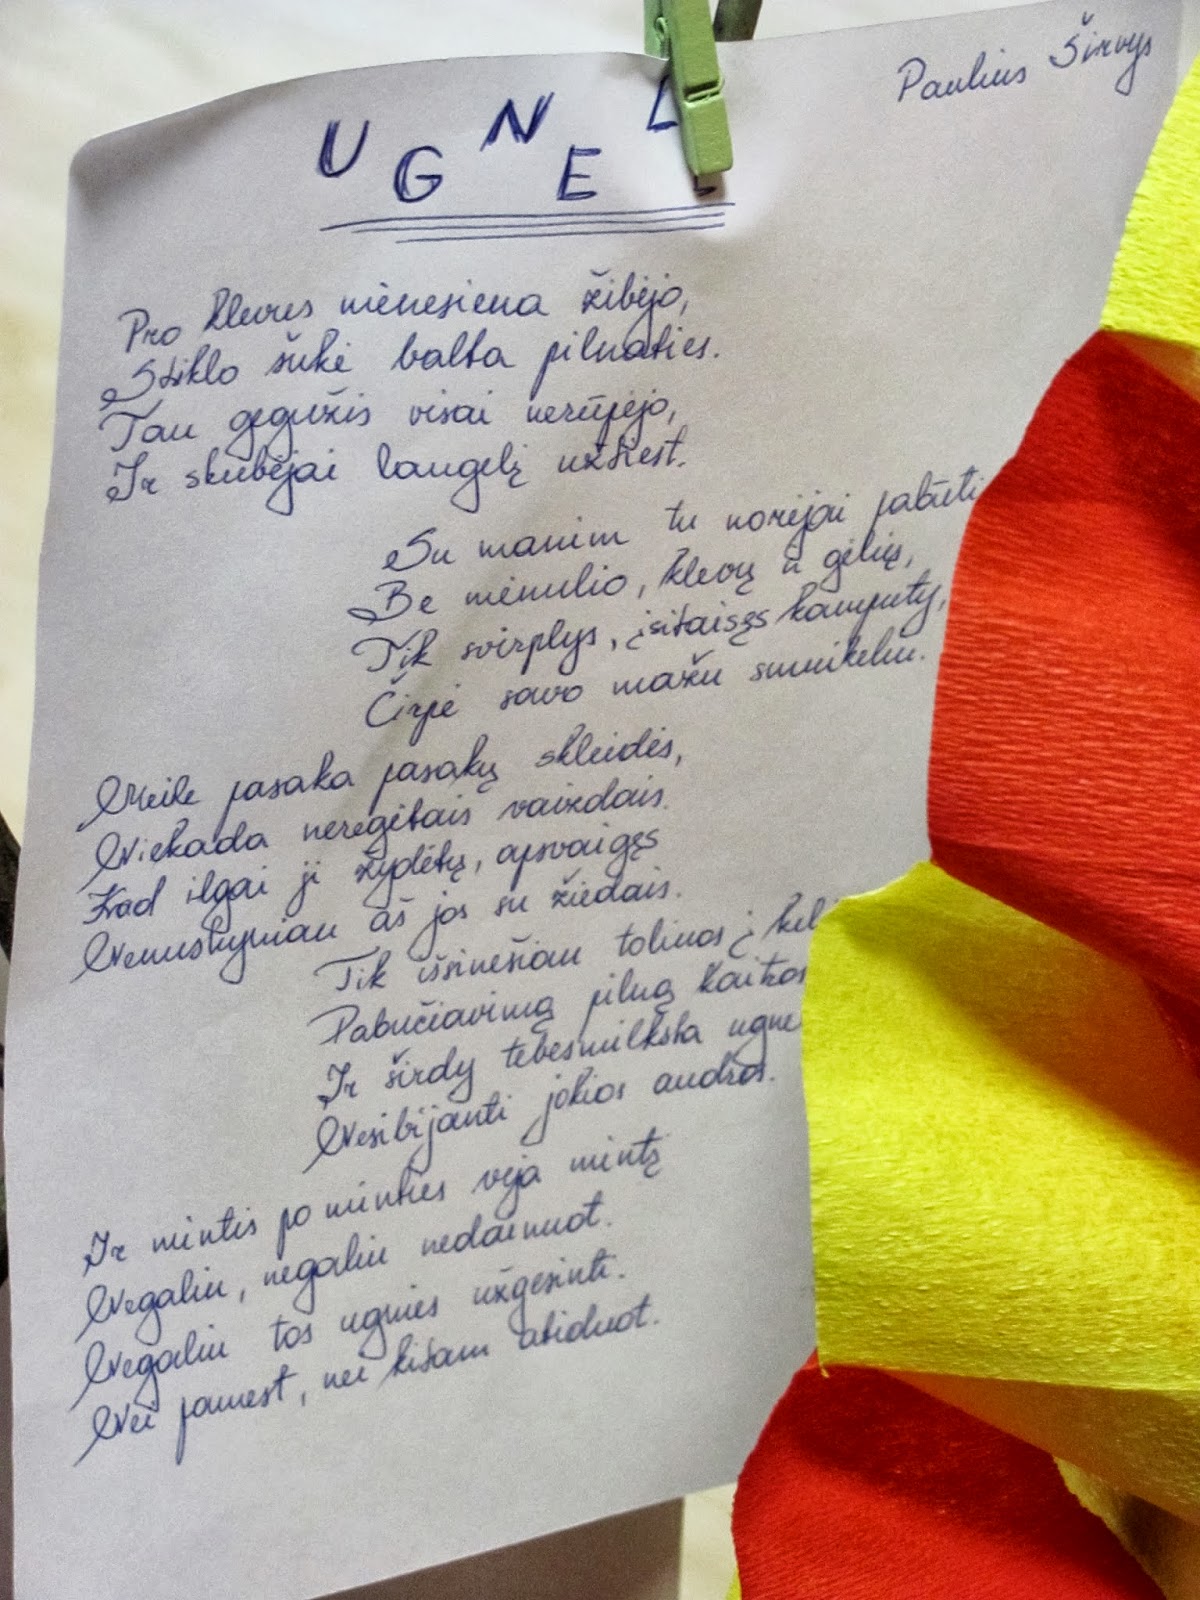 Paulius Širvys
UGNEL
Pro klevus mėnesiena žibėjo,
Stiklo šukė balta pilnaties.
Tau gegužis visai nerūpėjo,
Ir skubėjai langelį užtiest.
Su manim tu norėjai pabūti
Be mėnulio, klevų ir gėlių,
Tik svirplys, įsitaisęs kamputy,
Čirpė savo mažu smuikeliu.
Meilė pasaka pasakų skleidės,
Niekada neregėtais vaizdais.
Kad ilgai ji žydėtų, apsvaigęs
Nenuskyniau aš jos su žiedais.
Tik išsinešiau tolimos į
Pabučiavimą pilną kaitros
Ir širdy tebesmilksta ugne
Nesibijanti jokios audros.
Ir mintis po minties veja mintį
Negaliu, negaliu nedainuot.
Negaliu tos ugnies užgesinti.
Nei pamest, nei kitam atiduot.